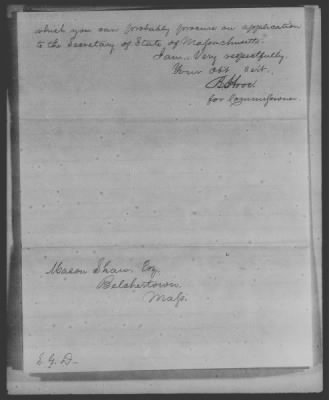 which you can probably procure on application
to the Secretary of State of Massachusetts.
I am, Very respectfully,
Your Obt Svt.
for Commissioner.
Mason Shaw, Esq.
Belchertown,
Mass.
E. G. D.